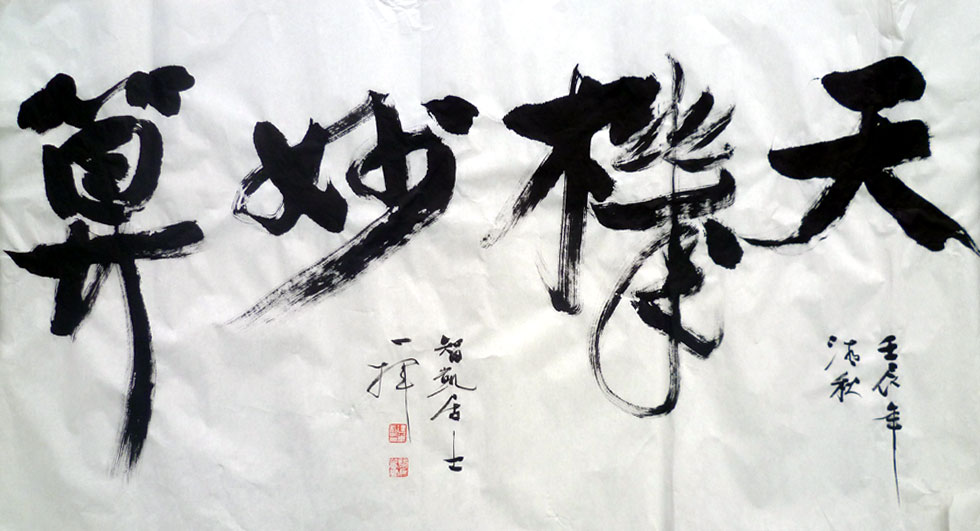 天機妙算
壬辰年
清秋
智凱居士
一揮